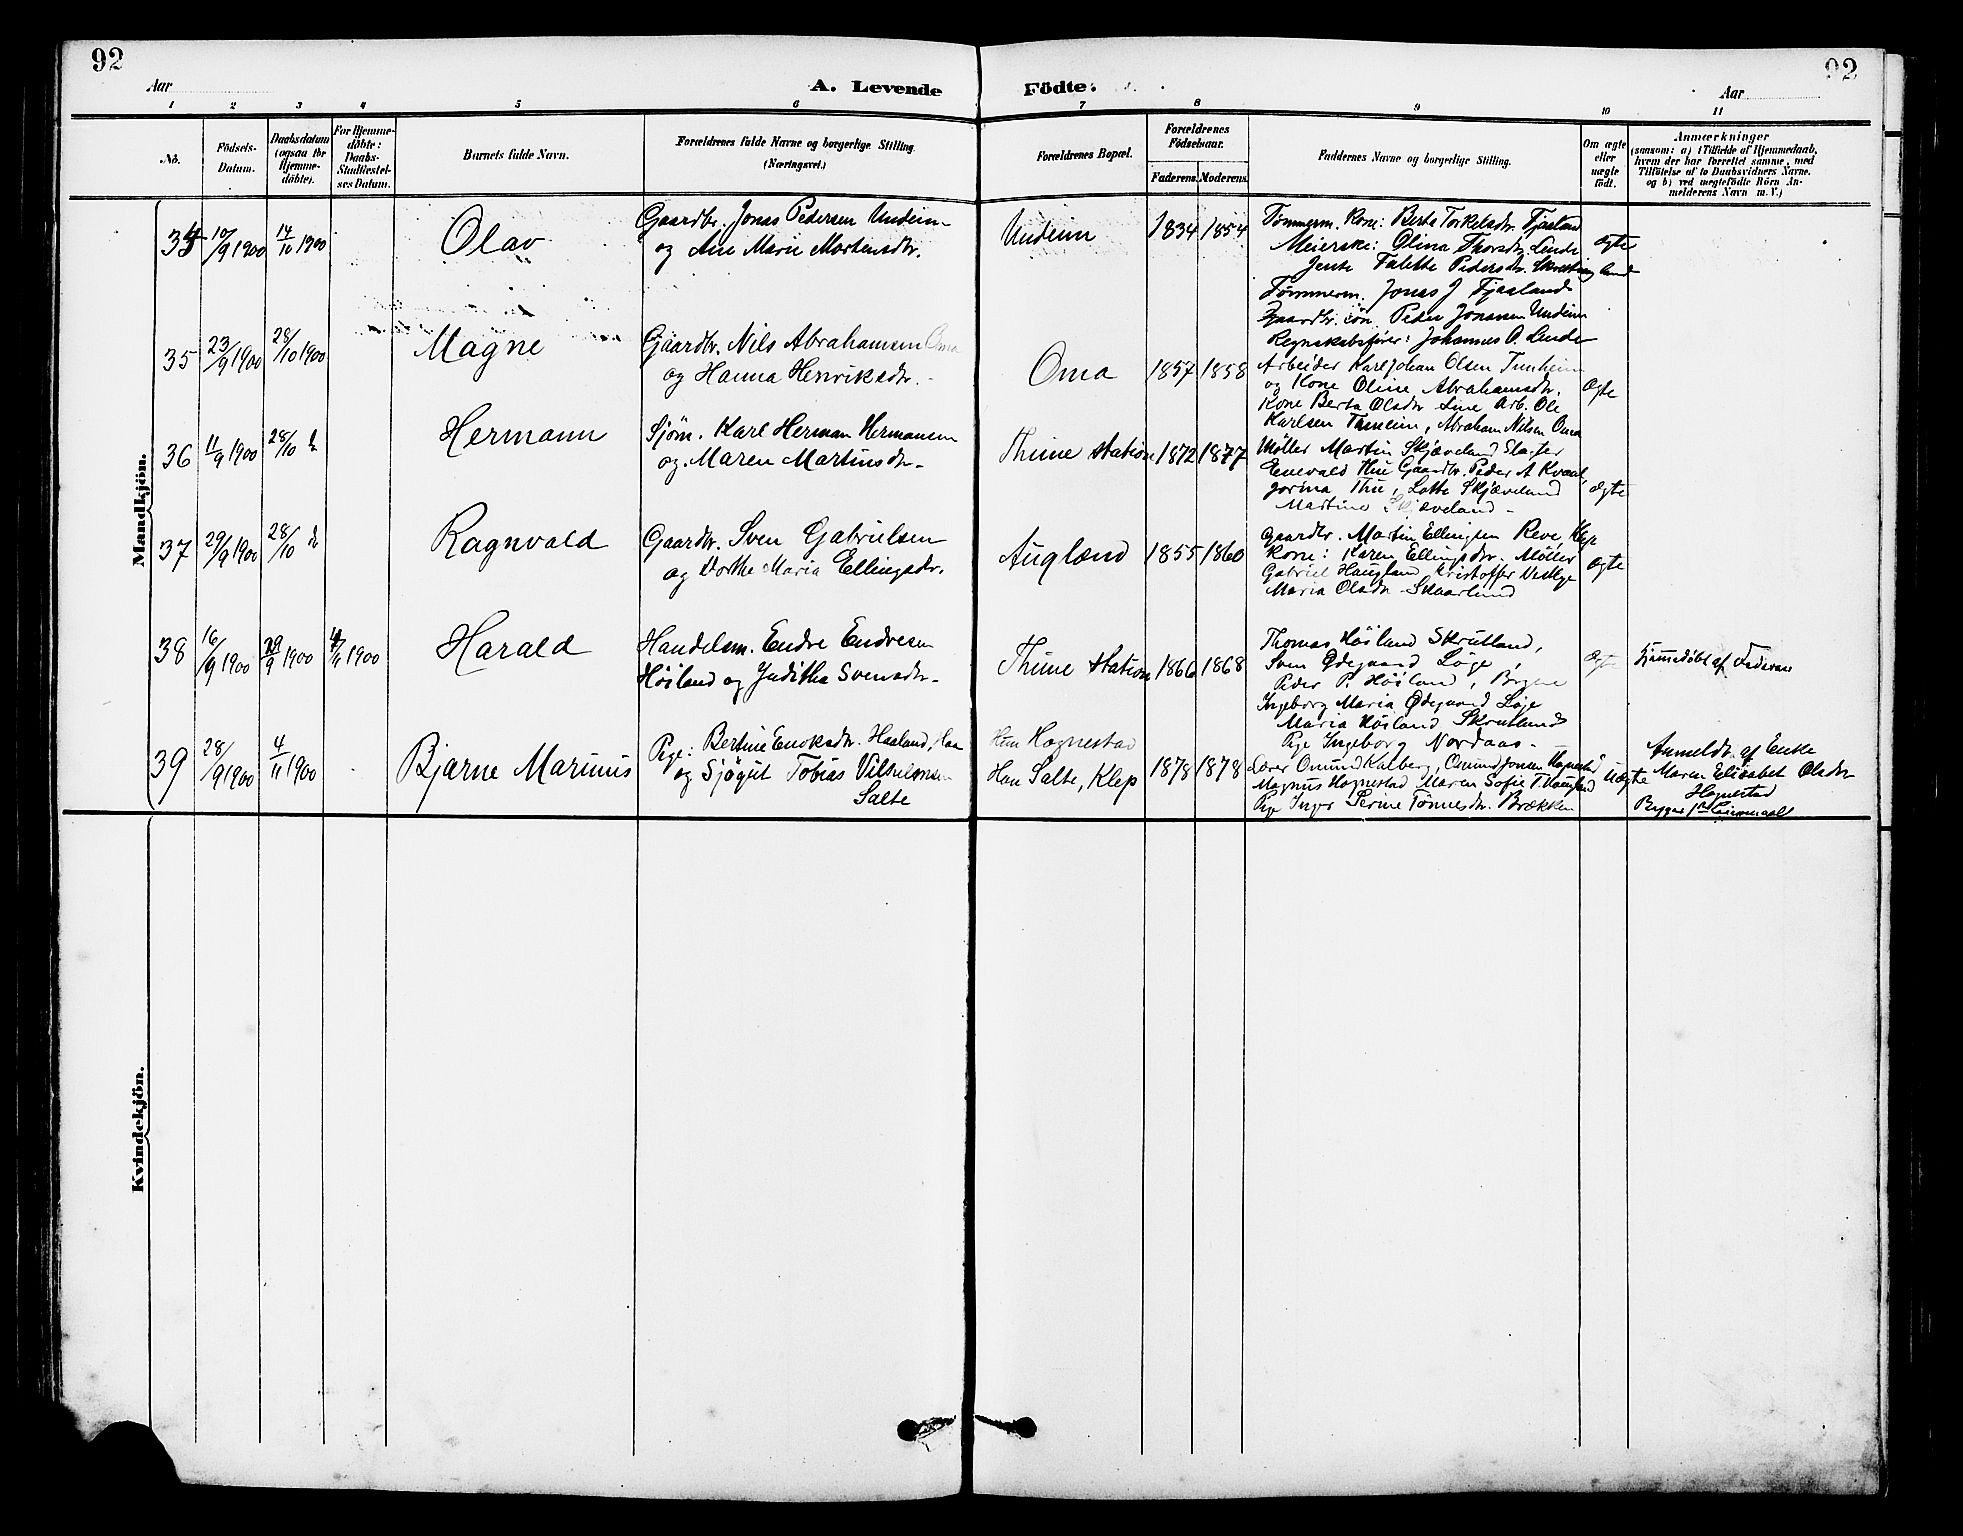 92
92
Aar
A. Levende Födte.
Aar
1 2 3 4 5 6 7 8 9 10 11
No.
Födsels-Datum.
Daabsdatum (ogsaa for Hjemmedöbte).
For Hjemmedöbte: Daabs-Stadfæstelses Datum.
Barnets fulde Navn.
Forældrenes fulde Navne og borgerlige Stilling. (Næringsvei.)
Forældrenes Bopæl.
Forældrenes Födselsaar.
Faderens. Moderens.
Faddernes Navne og borgerlige Stilling.
Om ægte eller uægte født.
Anmærkninger
(saasom: a) i Tilfælde af Hjemmedaab, hvem der har forrettet samme, med Tilföielse af to Daabsvidners Navne, og b) ved uægtefödte Börn Anmelderens Navn m. V.)
Mandkjön.
34 10/9 1900 14/10 1900 Olav
Gaardbr. Jonas Pedersen Undeim
og Ane Marie Mortensdtr.
Undeim 1834 1854
Tømmerm. Kone: Berta Torkelsdtr. Fjaaland
Meierske: Olina Thorsdtr. Lende
Jente Talette Pedersdtr.
Tømmerm. Jonas J Fjaaland
Gaardbr. søn Peder Jonasen Undeim
Regnskabsfører: Johannes O. Lende
Ægte
35 23/9 1900 28/10 1900 Magne
Gaardbr. Nils Abrahamsen Oma
og Hanna Henriksdtr.
Oma 1857 1858
Arbeider Karl Johan Olsen Tunheim
og Kone Oline Abrahamsdtr.
Kone Berta Olsdtr Lme Arb. Ole
Karlsen Tunheim, Abraham Nilsen Oma
Ægte
36 11/9 1900 28/10 d.
Hermann
Sjøm. Karl Herman Hermansen
og Maren Martinsdtr.
Thime station 1872 1877
Møller Martin Skjæveland Slagter
Enevald Thu Gaardbr. Peder A Kvaal,
Jorina Thu, Lotte Skjæveland
Martine Skjæveland
Ægte
37 29/9 1900 28/10 d.
Ragnvald
Gaardbr. Sven Gabrielsen
og Dorthe Maria Ellingsdtr.
Auglænd 1855 1860
Gaardbr. Martin Ellingsen Reve, Klep
Kone: Karen Ellingsdtr. Møller
Gabriel Haugland Kristoffer Vestlye
Maria Olsdtr Skaarlund
Ægte
38 16/9 1900 29/9 1900 4/11 1900 Harald
Handelsm. Endre Endresen
Høiland og Juditha Svensdtr.
Thime station 1866 1868
Thomas Høiland Skrutland,
Sven Ødegaard Løge,
Peder P. Høiland, Bryne
Ingeborg Maria Ødegaard Løge
Maria Høiland Skrutland
Pige Ingeborg Nordaas
Ægte
Hjemmedøbt af Faderen
39 28/9 1900 4/11 1900 Bjarne Marinus
Pige: Bertine Enoksdtr. Haaland, Haa
og Sjøgut Tobias Vilhelmsen
Salte
Hun Hognestad
Han Salte, Klep
1878 1878
Lærer Omund Kalberg, Omund Jonsen Hognestad
Magnus Hognestad Maren Sofie T. Haugland
Pige Inger Serine Tønnesdtr. Brækken
Uægte
Anmeldt af Enke
Maren Elisabet Olsdtr
Hognestad
Begges 1ste Leiermaal
Kvindekjön.